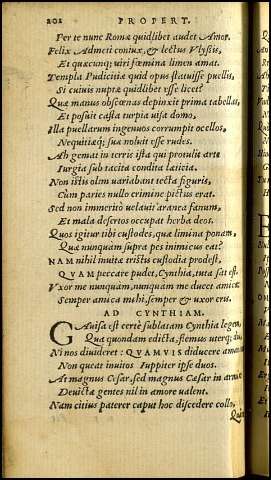 202 PROPERT.
Per te nunc Romæ quidlibet audet Amor.
Felix Admeti coniux, & lectus Vlyssis,
Et quæcunq; uiri fœmina limen amat.
Templa Pudicitiæ quid opus statuisse puellis,
Si cuiuis nuptæ quidlibet esse licet?
Quæ manus obscœnas depinxit prima tabellas,
Et posuit casta turpia uisa domo.
Illa puellarum ingenuos corrumpit ocellos,
Nequitiæq; suæ noluit esse rudes.
Ah gemat in terris ista qui protulit arte
Iurgia sub tacita condita lætitia.
Non istis olim uariabant tecta figuris,
Cum paries nullo crimine pictus erat.
Sed non immeritò uelauit aranea fanum,
Et mala desertos occupat herba deos.
Quos igitur tibi custodes, quæ limina ponam,
Quæ nunquam supra pes inimicus eat?
NAM nihil inuitæ tristis custodia prodest,
QVAM peccare pudet, Cynthia, tuta sat est.
Vxor me nunquam, nunquam me ducet amica:
Semper amica mihi, semper & uxor eris.
AD CYNTHIAM.
Gauisa est certè sublatam Cynthia legem,
Qua quondam edicta, flemus uterq; diu,
Ni nos diuideret: QVAMVIS diducere amantes
Non queat inuitos Iuppiter ipse duos.
At magnus Cæsar, sed magnus Cæsar in armis:
Deuictæ gentes nil in amore ualent.
Nam citius paterer caput hoc discedere collo,